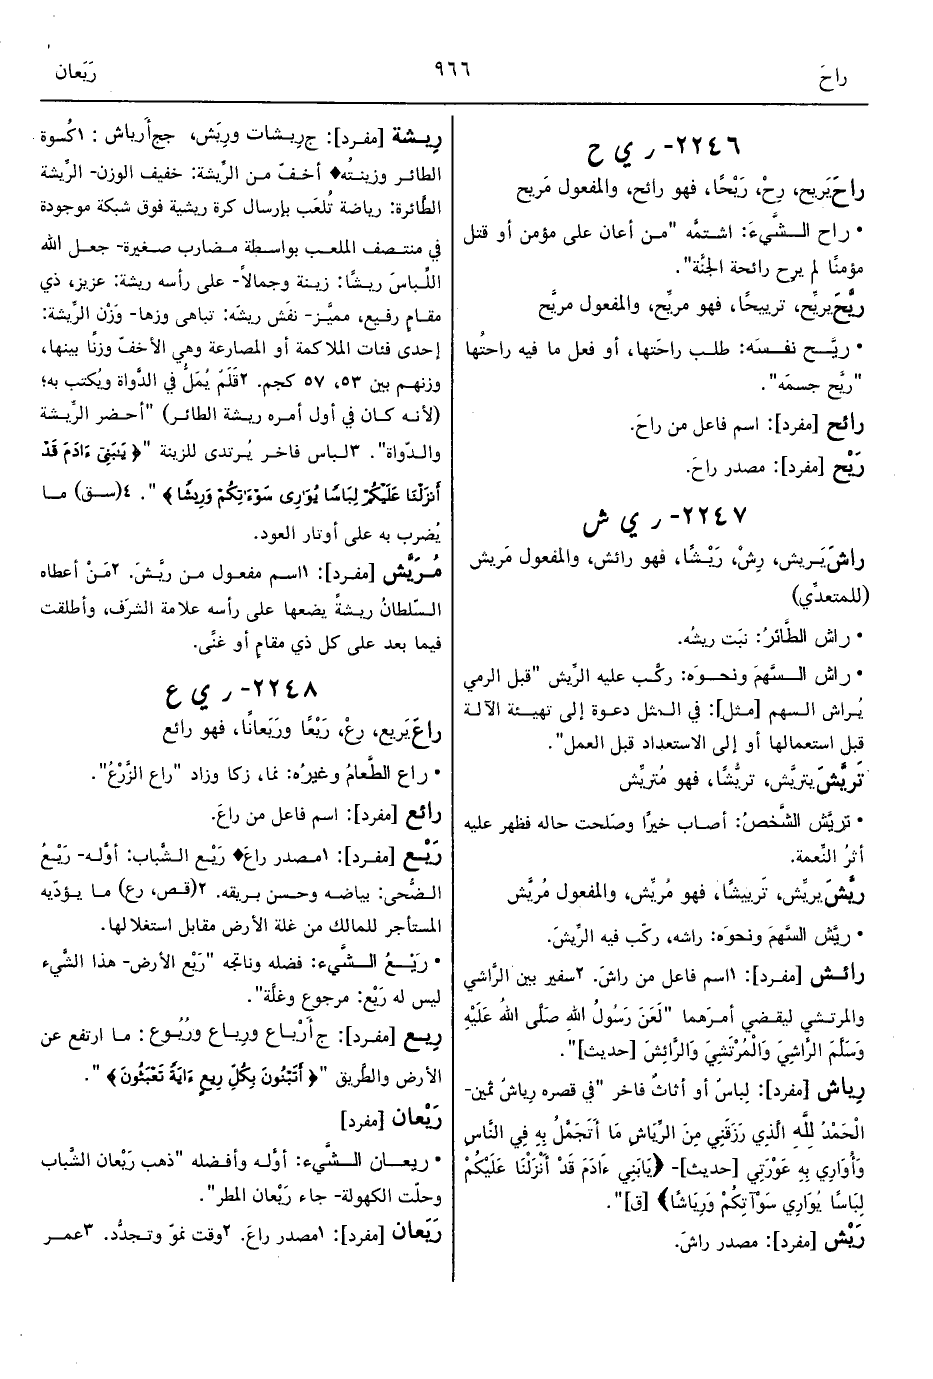 راحَ
٩٦٦
رَيَعان
٢٢٤٦- ر ي ح
راحَ يَريح، رِحْ، رَيْحًا، فهو رائح، والمفعول مَريح
• راح الشَّيءَ: اشتمَّه "من أعان على مؤمن أو قتل
مؤمنًا لم يرح رائحة الجنَّة".
ريَّحَ يريِّح، ترييحًا، فهو مريِّح، والمفعول مريَّح
• ريَّح نفسَه: طلب راحتَها، أو فعل ما فيه راحتُها
"ريَّح جسمَه".
رائح [مفرد]: اسم فاعل من راحَ.
رَيْح [مفرد]: مصدر راحَ.
٢٢٤٧- ر ي ش
راشَ يَريش، رِشْ، رَيْشًا، فهو رائش، والمفعول مَريش
(للمتعدِّي)
• راش الطَّائرُ: نبَت ريشُه.
• راش السَّهمَ ونحوَه: ركَّب عليه الرِّيش "قبل الرمي
يُراش السهم [مثل]: في المثل دعوة إلى تهيئة الآلة
قبل استعمالها أو إلى الاستعداد قبل العمل".
تَريَّشَ يتريَّش، تريُّشًا، فهو مُتريِّش
• تريَّش الشَّخصُ: أصاب خيرًا وصَلحت حاله فظهر عليه
أثرُ النِّعمة.
ريَّشَ يريِّش، تَرييشًا، فهو مُريِّش، والمفعول مُريَّش
• ريَّش السَّهمَ ونحوَه: راشه، ركّب فيه الرِّيشَ.
رائش [مفرد]: ١اسم فاعل من راشَ. ٢سفير بين الرَّاشي
والمرتشي ليقضي أمرَهما "لَعَنَ رَسُولُ اللهِ صَلَّى اللهُ عَلَيْهِ
وَسَلَّمَ الرَّاشِيَ وَالْمُرْتَشِيَ وَالرَّائِشَ [حديث]".
رِياش [مفرد]: لِباسٌ أو أثاثٌ فاخر "في قصره رِياشٌ ثمين-
الْحَمْدُ للَّهِ الَّذِي رَزَقَنِي مِنَ الرِّيَاشِ مَا أَتَجَمَّلُ بِهِ فِي النَّاسِ
وَأُوَارِي بِهِ عَوْرَتِي [حديث]- ﴿يَابَنِي ءَادَمَ قَدْ أَنْزَلْنَا عَلَيْكُمْ
لِبَاسًا يُوَارِي سَوْآتِكُمْ وَرِيَاشًا﴾ [ق]".
رَيْش [مفرد]: مصدر راشَ.
رِيشة [مفرد]: ج رِيشات ورِيَش، جج أرياش: ١كُسوة
الطائر وزينتُه♦ أخفّ من الرِّيشة: خفيف الوزن- الرِّيشة
الطَّائرة: رياضة تُلعَب بإرسال كرة ريشية فوق شبكة موجودة
في منتصف الملعب بواسطة مضارب صغيرة- جعل الله
اللِّباسَ ريشًا: زينة وجمالاً- على رأسه ريشة: عزيز، ذي
مقام رفيع، مميَّز- نفَش ريشَه: تباهى وزها- وَزْن الرِّيشة:
إحدى فئات الملاكمة أو المصارعة وهي الأخفّ وزنًا بينها،
وزنهم بين ٥٣، ٥٧ كجم. ٢قَلَمٌ يُمَلُّ في الدَّواة ويُكتب به؛
(لأنه كان في أول أمره ريشة الطائر) "أحضر الرِّيشة
والدَّواة". ٣لباس فاخر يُرتدى للزينة "﴿يَٰبَنِىٓ ءَادَمَ قَدْ
أَنزَلْنَا عَلَيْكُمْ لِبَاسًا يُوَٰرِى سَوْءَٰتِكُمْ وَرِيشًا﴾". ٤(سق) ما
يُضرب به على أوتار العود.
مُرَيَّش [مفرد]: ١اسم مفعول من ريَّشَ. ٢مَنْ أعطاه
السّلطانُ ريشةً يضعها على رأسه علامة الشرَف، وأطلقت
فيما بعد على كل ذي مقامٍ أو غنًى.
٢٢٤٨- ر ي ع
راعَ يَريع، رِعْ، رَيْعًا ورَيَعانًا، فهو رائع
• راع الطَّعامُ وغيرُه: نما، زكا وزاد "راع الزَّرْعُ".
رائع [مفرد]: اسم فاعل من راعَ.
رَيْع [مفرد]: ١مصدر راعَ♦ رَيْع الشَّباب: أوَّله- رَيْعُ
الضُّحى: بياضه وحسن بريقه. ٢(قص، رع) ما يؤدّيه
المستأجر للمالك من غلة الأرض مقابل استغلالها.
• رَيْعُ الشَّيء: فضله وناتجه "رَيْع الأرض- هذا الشَّيء
ليس له رَيْع: مرجوع وغلَّة".
رِيع [مفرد]: ج أَرْياع ورِياع ورُيُوع: ما ارتفع عن
الأرض والطَّريق "﴿أَتَبْنُونَ بِكُلِّ رِيعٍ ءَايَةً تَعْبَثُونَ﴾".
رَيْعان [مفرد]
• ريعان الشَّيء: أوَّله وأفضله "ذهب رَيْعان الشَّباب
وحلّت الكهولة- جاء رَيْعان المطر".
رَيَعان [مفرد]: ١مصدر راعَ. ٢وقت نموّ وتجدُّد. ٣عمر